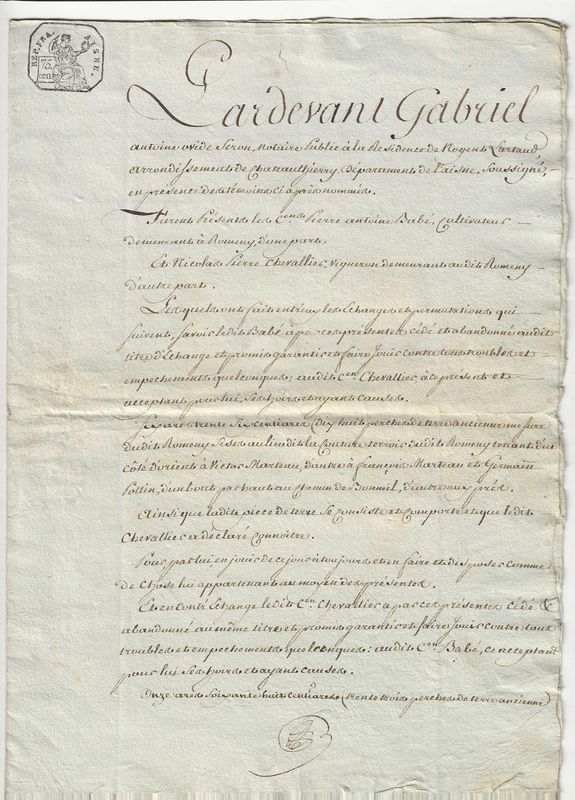 REP. FRA.
AISNE.
75
CENT.
Pardevant Gabriel
antoine ovide Seron, notaire Public à la Residence de Nogent Lartaud,
arrondissement de Chateauthierry, Département de l'aisne, Soussigné,
en presence des témoins ci après nommés.
Furent Présents les C.ens Pierre antoine Babé, Cultivateur
demeurant à Romeny, d'une part.
Et Nicolas Pierre Chevallier, vigneron demeurant audit Romeny
d'autre part.
Lesquels ont fait entr'eux les Echanges et permutations qui
suivent, savoir ledit Babé a par ces présentes cédé et abandonné audit
titre d'Echange et promis garantir et faire Jouir contre tous troubles et
empechements quelconques; audit C.en Chevallier, à ce present et
acceptant pour lui, Ses hoirs et ayant causes.
Six ares trente Six centiares (dix huit perches de terre ancienne mesure
dudit Romeny Sises au lieudit la Couture terroir dudit Romeny tenant d'un
côté d'orient à Victor Marteau, d'autre a françois Marteau et Germain
Pottin, d'un bout par haut au Chemin de Bonneil, d'autre aux prés.
Ainsi que ladite piece de terre Se Consiste et Comporte et que ledit
Chevallier a déclaré connoitre.
Pour, par lui en jouir de ce jour à toujours et en faire et disposer comme
de Chose lui appartenant au moyen des présentes.
Et en contr'Echange ledit C.en Chevallier a par ces présentes cédé &
abandonné au même titre et promis garantir et faire Jouir contre tous
troubles et empechements quelconques: audit C.en Babé, ce acceptant
pour lui Ses hoirs et ayant causes.
Onze ares Soixante huit Centiares (trente trois perches de terre ancienne)